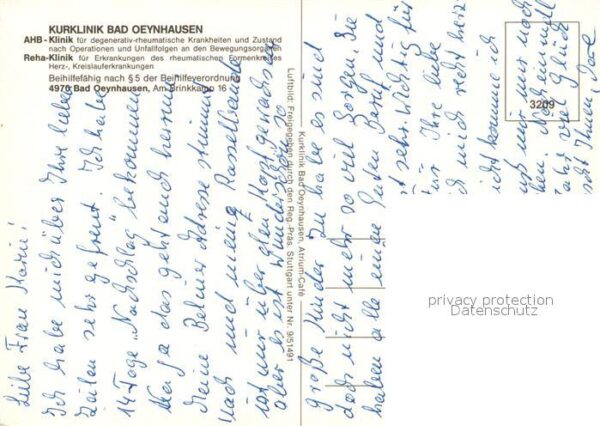 KURKLINIK BAD OEYNHAUSEN
AHB-Klinik für degenerativ-rheumatische Krankheiten und Zustand
nach Operationen und Unfallfolgen an den Bewegungsorganen
Reha-Klinik für Erkrankungen des rheumatischen Formenkreises
Herz-, Kreislauferkrankungen
Beihilfefähig nach § 5 der Beihilfeverordnung
4970 Bad Oeynhausen, Am Brinkkamp 16
Kurklinik Bad Oeynhausen, Atrium-Café
Luftbild: Freigegeben durch den Reg.-Präs. Stuttgart unter Nr. 9/51491
3209
Liebe Frau Marin!
Ich habe mich über Ihre lieben
Zeilen sehr gefreut. Ich habe
14 Tage "Nachschlag" bekommen
Naja das geht auch herum.
Meine Berliner Adresse stimmt
und meine Rasselbande
ist mir über den Kopf gewachsen
aber es ist wunderschön so
große Kinder zu haben es sind
doch nicht mehr so viel Sorgen. Sie
haben alle einen guten Beruf und
sehr wichtig für
Ihre liebe
mich recht herz
nicht komme ich
mir nur noch
viel Glück
Ihnen,
privacy protection
Datenschutz